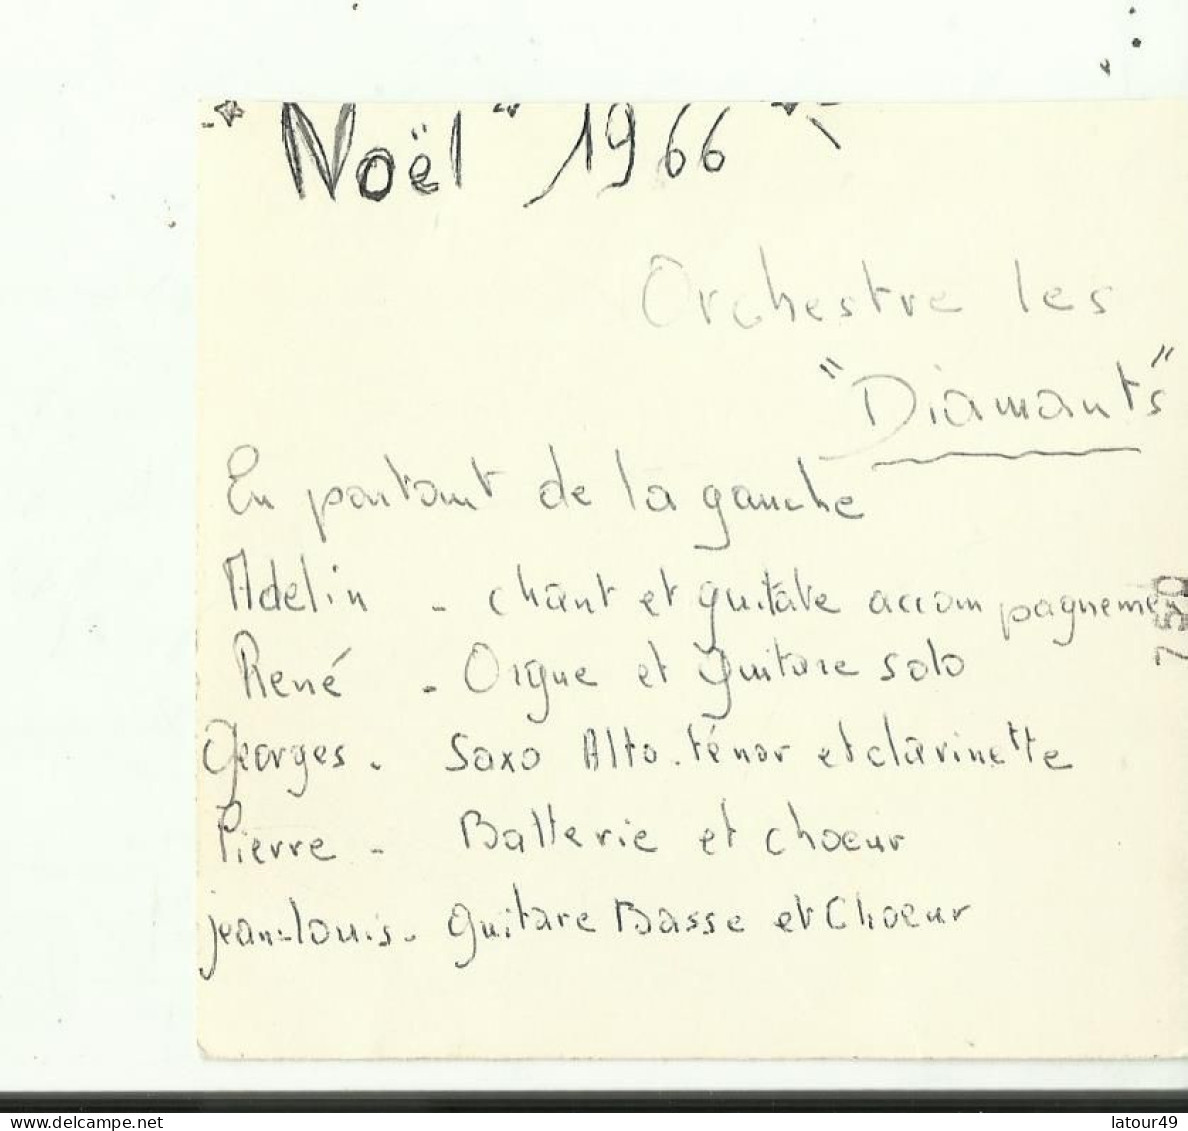 Noël 1966
Orchestre les
"Diamants"
En partant de la gauche
Adelin - chant et guitare accompagnement
René - Orgue et guitare solo
Georges - Saxo Alto-ténor et clarinette
Pierre - Batterie et choeur
jean-louis - guitare Basse et Choeur
750
www.delcampe.net
latour49